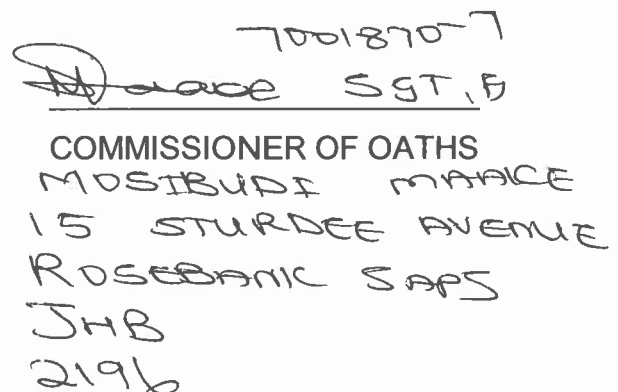 7001870-7
SGT, F
COMMISSIONER OF OATHS
MOSIBUDI MAAKE
15 STURDEE AVENUE
ROSEBANK SAPS
JHB
2196